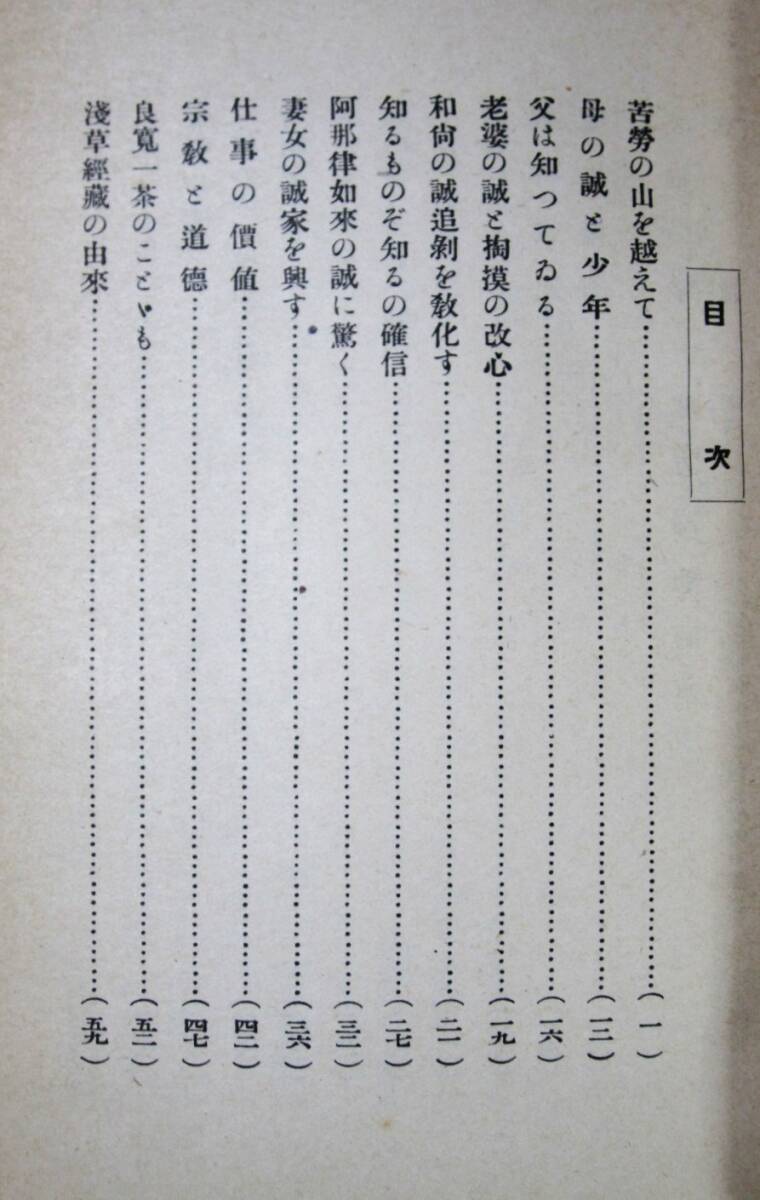 目次
苦勞の山を越えて……………(一)
母の誠と少年……………(一二)
父は知つてゐる……………(一六)
老婆の誠と掏摸の改心……………(一九)
和尙の誠追剝を敎化す……………(二一)
知るものぞ知るの確信……………(二七)
阿那律如來の誠に驚く……………(三二)
妻女の誠家を興す……………(三六)
仕事の價値……………(四二)
宗敎と道德……………(四七)
良寬一茶のことゞも……………(五二)
淺草經藏の由來……………(五九)